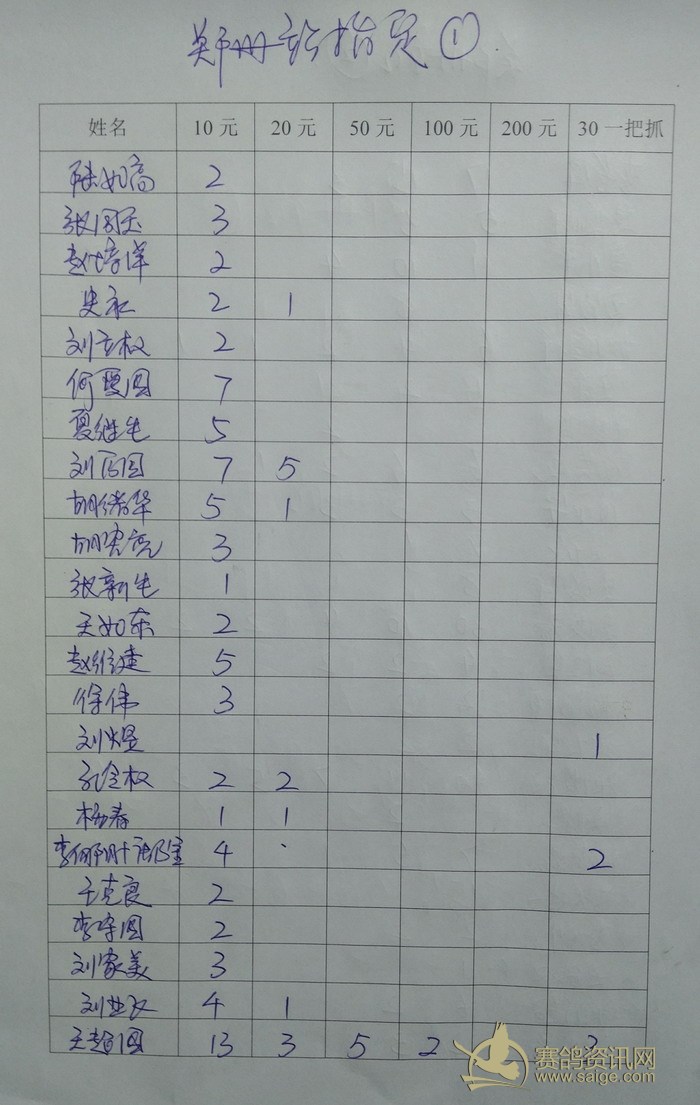 郑州站指定①
姓名 10元 20元 50元 100元 200元 30一把抓
陆如高 2
张国玉 3
赵培洋 2
史永 2 1
刘立权 2
何夏园 7
夏继生 5
刘 园 7 5
胡绪华 5 1
胡宏亮 3
张新生 1
王如东 2
赵维建 5
徐伟 3
刘煜 1
孔令权 2 2
杨春 1 1
李 4 2
王克良 2
李守园 2
刘家美 3
刘业 4 1
王超园 13 3 5 2
赛鸽资讯网
www.saige.com